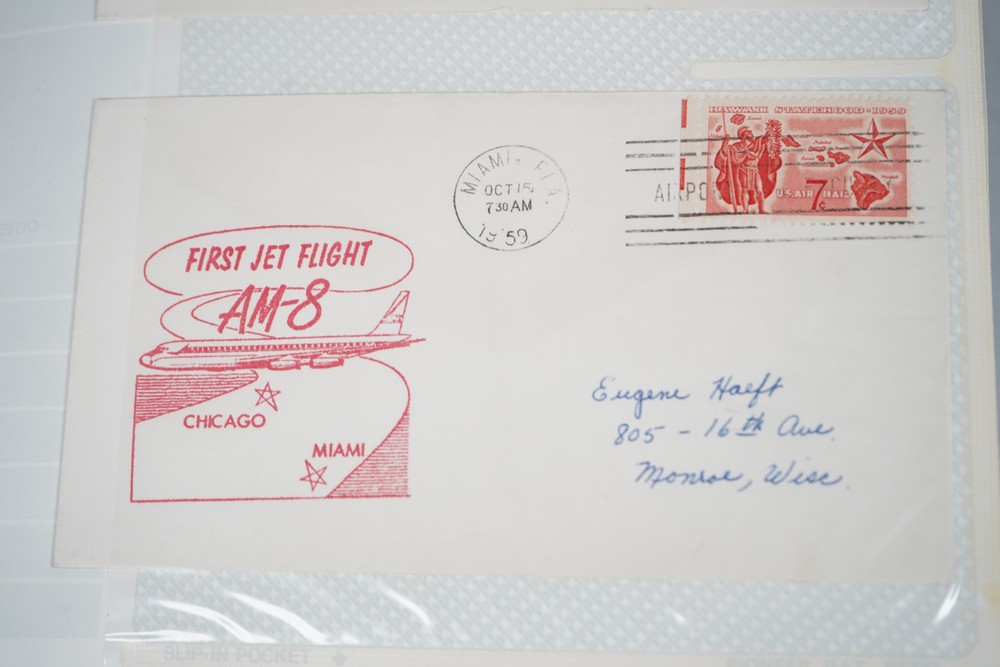 HAWAII STATEHOOD·1959
U.S. AIR MAIL 7c
MIAMI, FLA.
OCT 15
7 30 AM
1959
FIRST JET FLIGHT
AM-8
CHICAGO
MIAMI
Eugene Haeft
805 - 16th Ave.
Monroe, Wisc.
SLIP-IN POCKET